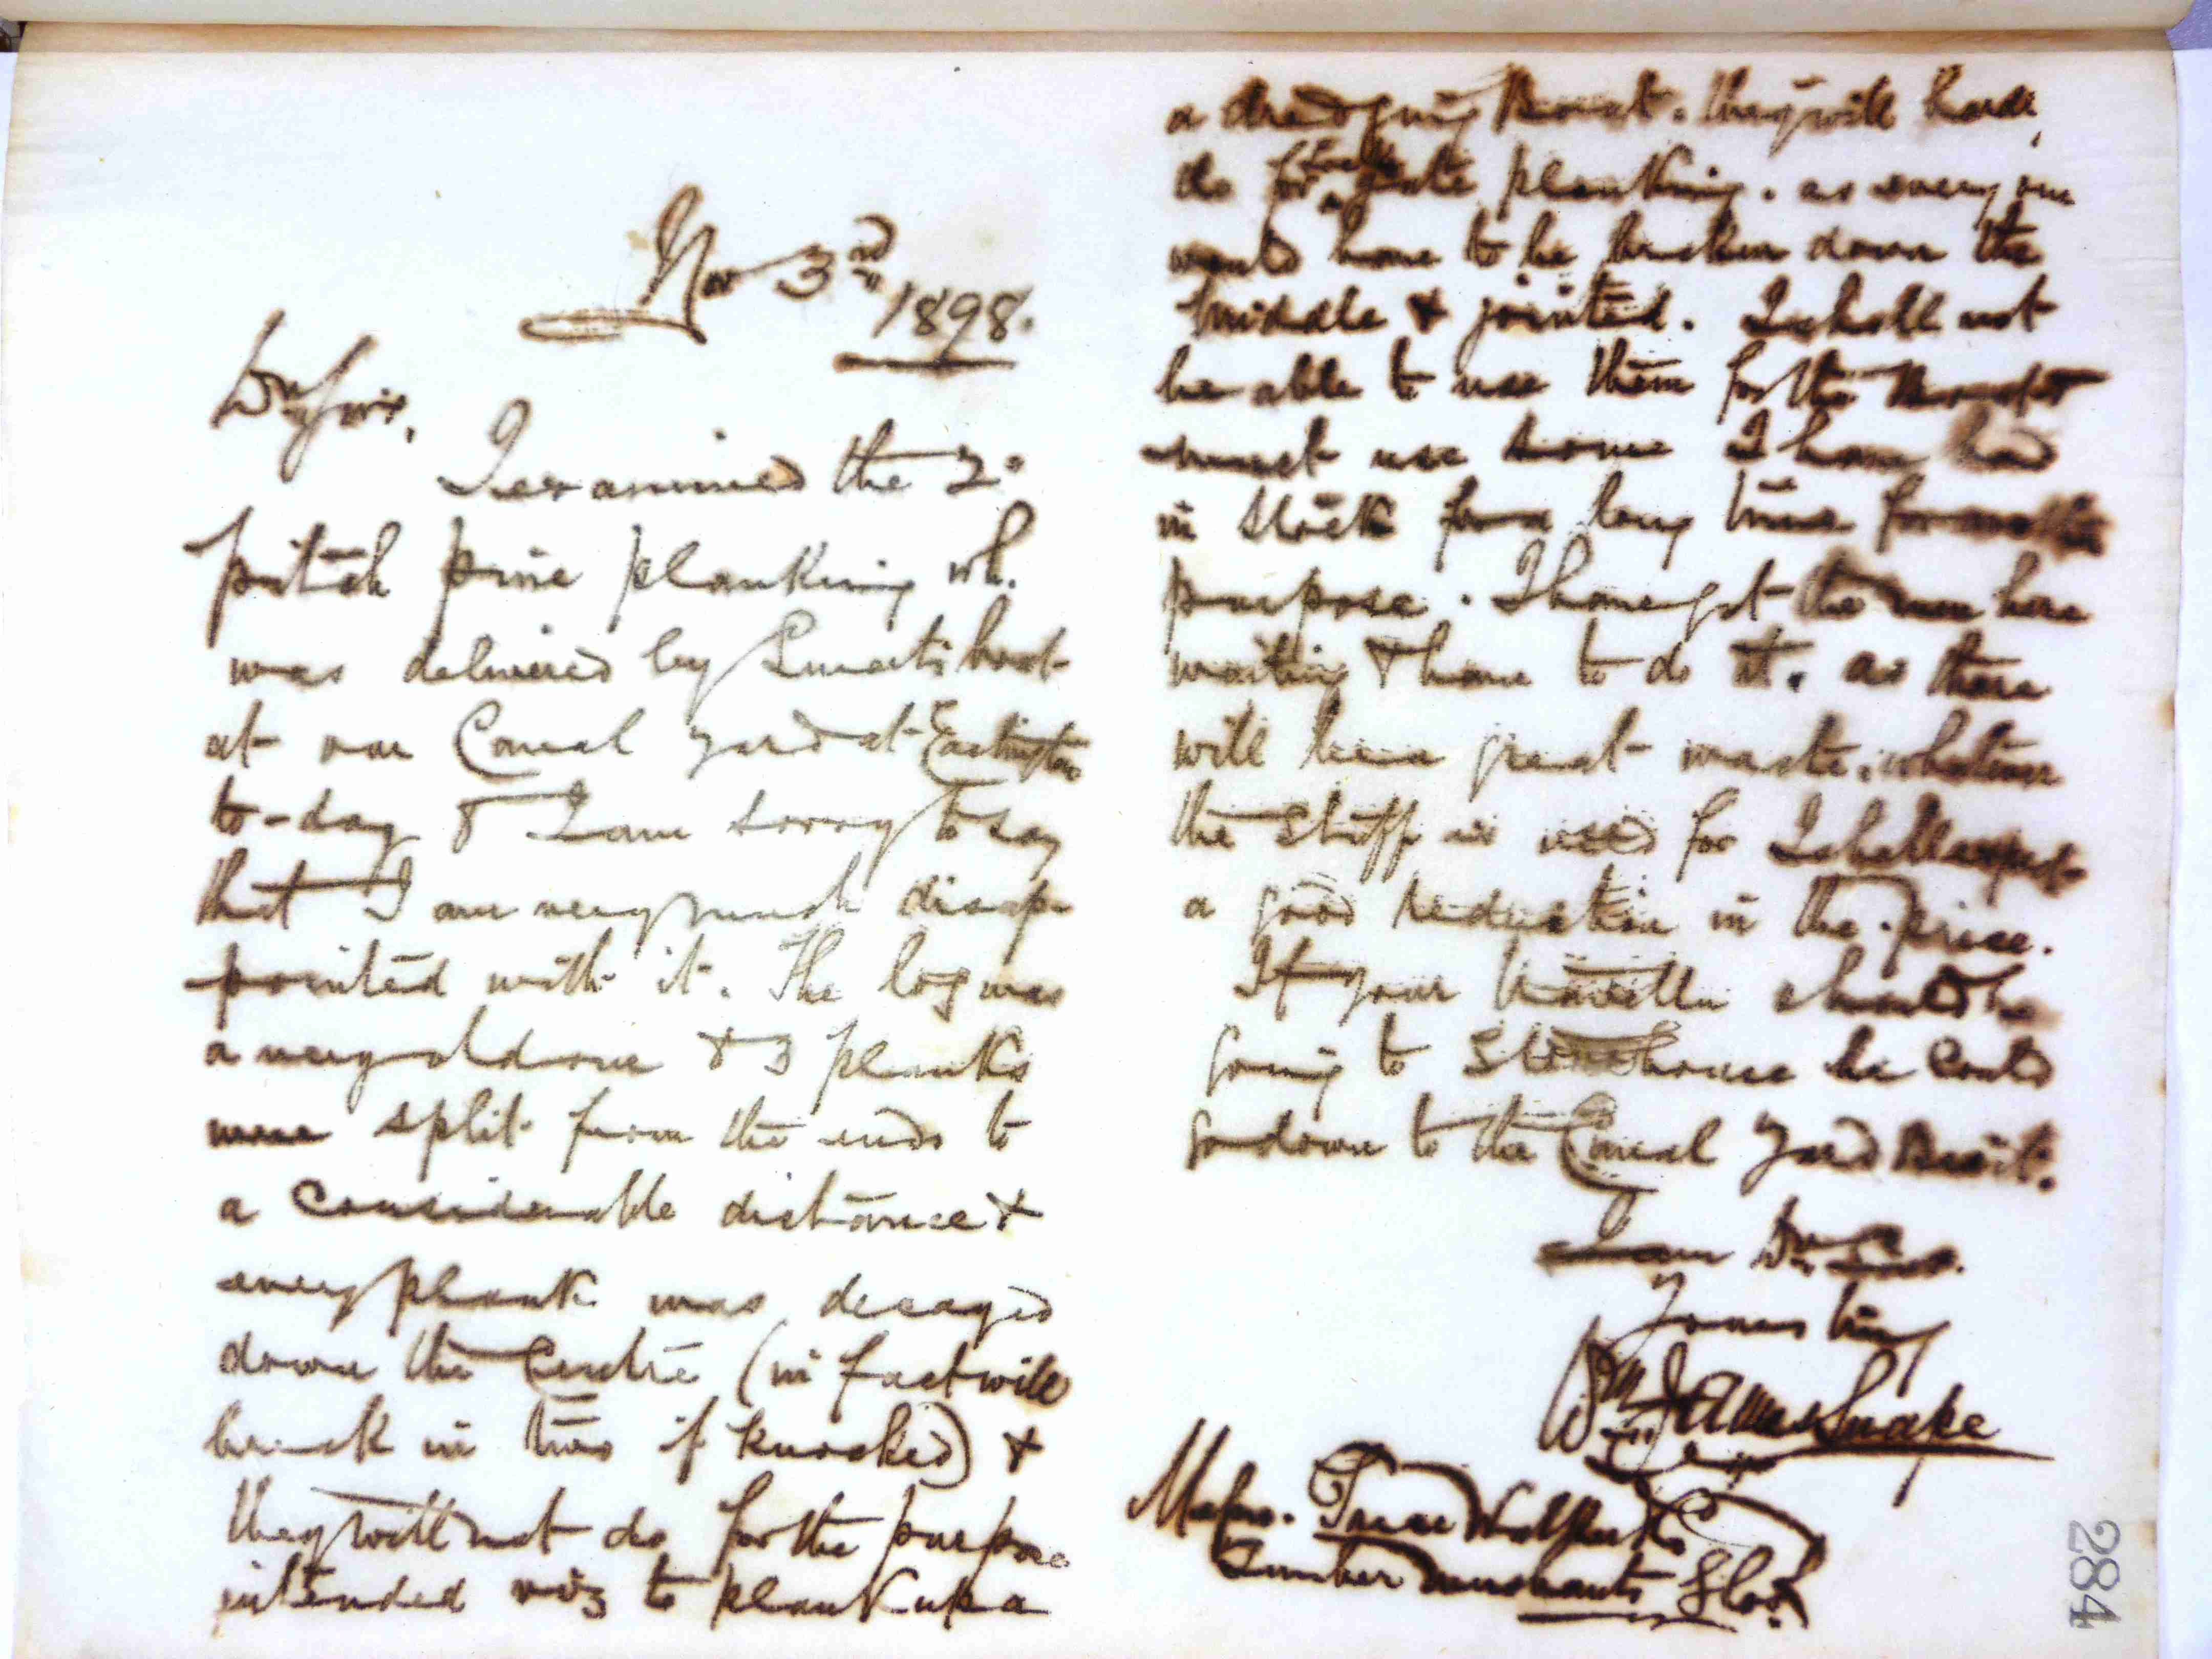 Nov 3rd 1898.
Dr Sirs,
I examined the 2"
pitch pine planking wh.
was delivered by Smarts boat
at our Canal yard at Eastington
to-day & I am sorry to say
that I am very much disap
pointed with it. The log was
a very old one & 3 planks
were split from the ends to
a considerable distance &
every plank was decayed
down the Centre (in fact will
break in two if knocked) &
they will not do for the purpose
intended viz to plank up a
a dredging boat. they will hardly
do for planking. as every one
would have to be broken down the
middle & jointed. I shall not
be able to use them for the
must use some I have had
in stock for a long time for another
purpose. I have got the men here
waiting & have to do it. as there
will be a great waste, whatever
the stuff is used for I shall expect
a good reduction in the price.
If your traveller should be
going to Stonehouse he could
go down to the Canal Yard & see it.
I am Dr Sirs.
Yours truly
Wm James Snape
Messrs.
Timber Merchants Glos.
284